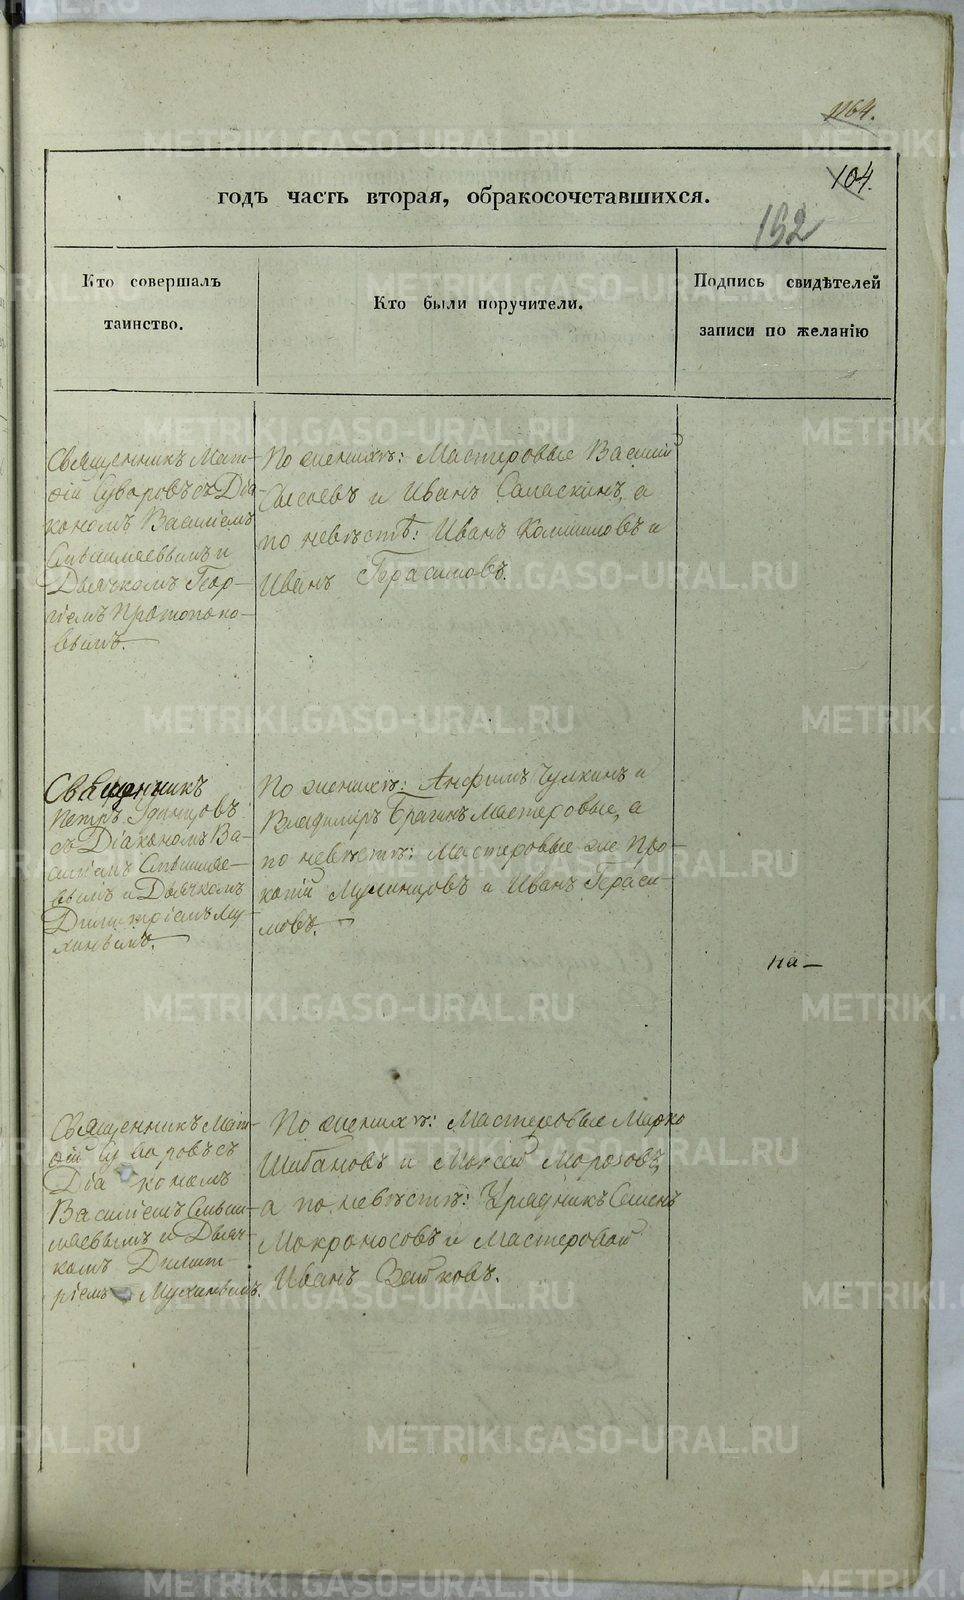 1164.
104.
годъ часть вторая, обракосочетавшихся.
152
Кто совершалъ
таинство.
Кто были поручители.
Подпись свидѣтелей
записи по желанію
Священникъ Мат-
ѳій Суворовъ съ Діа-
кономъ Василіемъ
и
Дьячкомъ Геор-
гіемъ Протопо-
повымъ.
По женихѣ: Мастеровые Василій
и Иванъ а
по невѣстѣ: Иванъ и
Иванъ Герасимовъ.
Священникъ
Петръ Удинцовъ
съ Діакономъ Ва-
силіемъ
и Дьячкомъ
Димитріемъ Му-
хинымъ.
По женихѣ: Анфимъ Чулкинъ и
Владимиръ Брагинъ Мастеровые, а
по невѣстѣ: Мастеровые же Про-
копій и Иванъ Гераси-
мовъ.
на-
Священникъ Мат-
ѳій Суворовъ съ
Діакономъ
Василіемъ
и Дьяч-
комъ Димит-
ріемъ Мухинымъ.
По женихѣ: Мастеровые Марко
Шибановъ и Моисей Морозовъ,
а по невѣстѣ: Урядникъ Семенъ
Мокроносовъ и Мастеровой
Иванъ Зайковъ.
METRIKI.GASO-URAL.RU